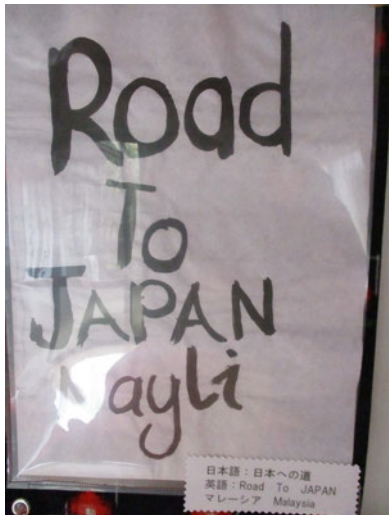 Road
To
JAPAN
Nayli
日本語：日本への道
英語：Road To JAPAN
マレーシア Malaysia